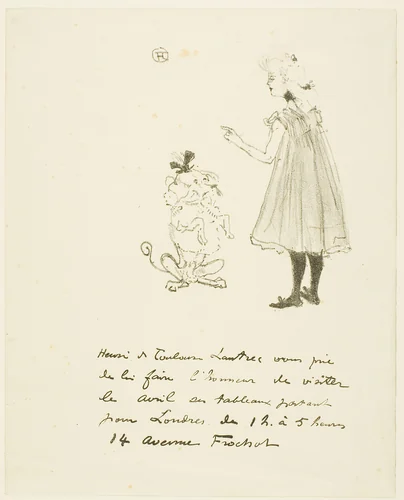 Henri de Toulouse Lautrec vous prie
de lui faire l'honneur de visiter
le avril ses tableaux partant
pour Londres de 1 h. à 5 heures
14 avenue Frochot